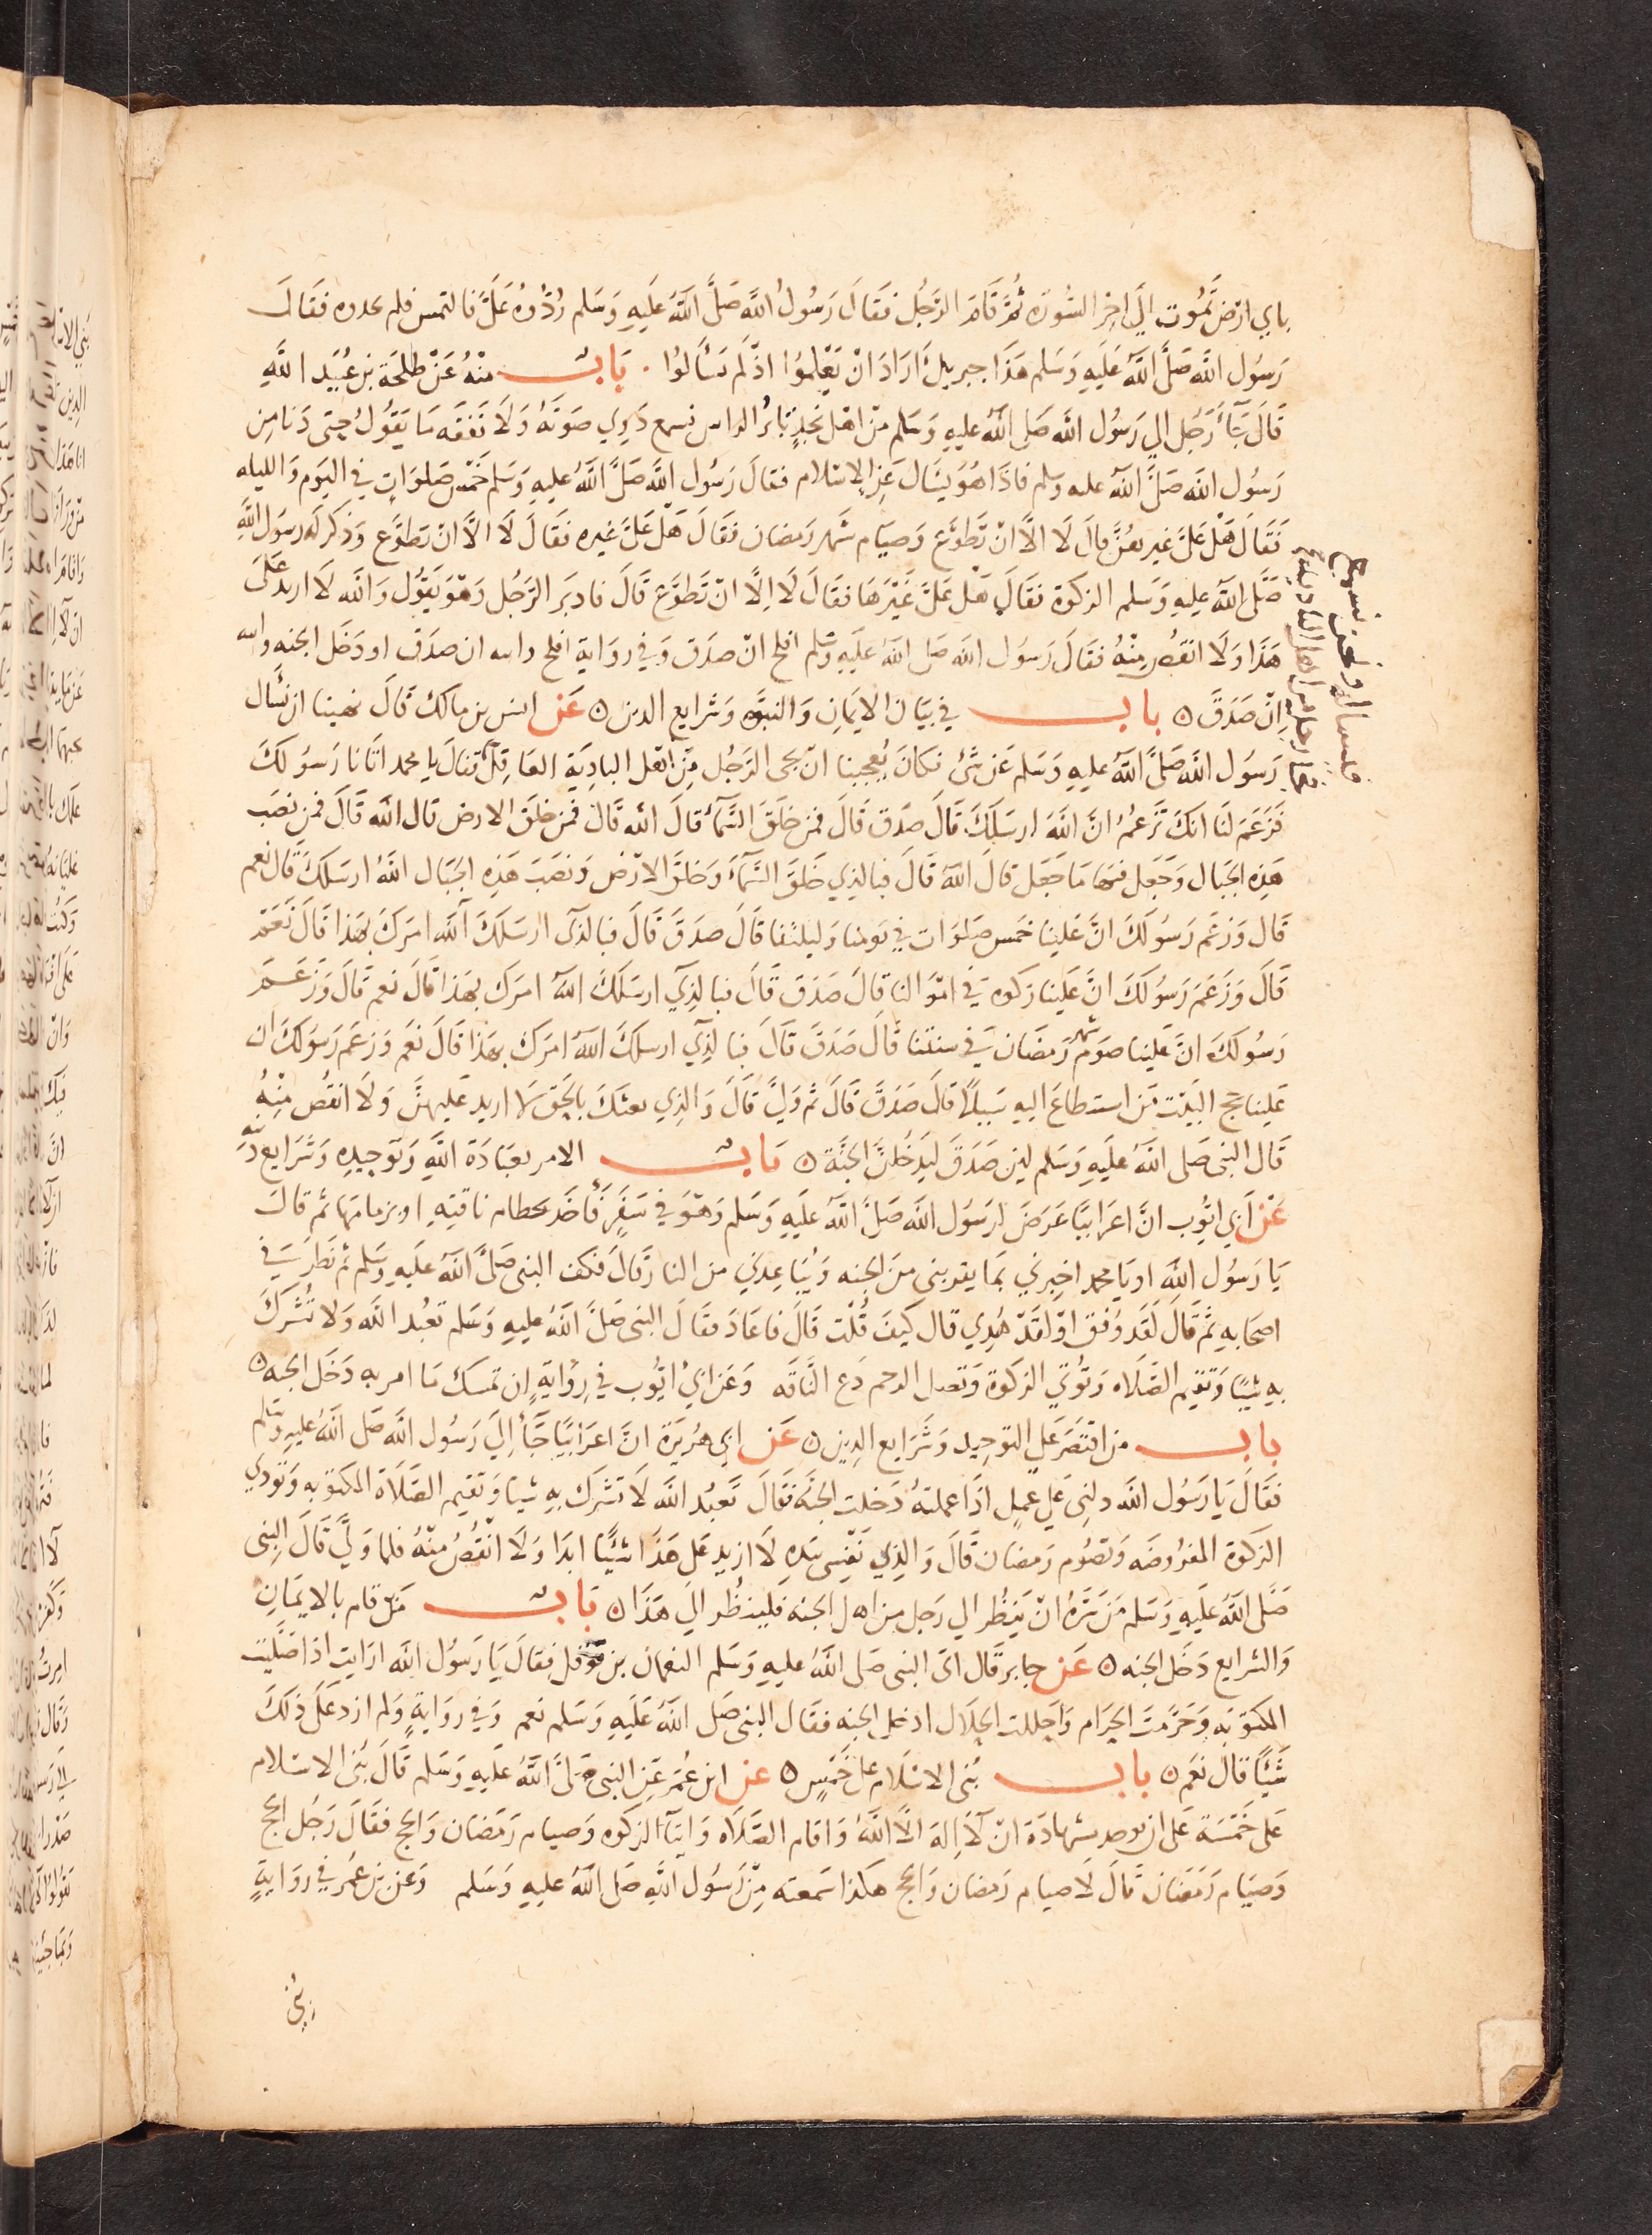 باي ارض تموت الي اخر السورة ثم قام الرجل فقال رسول الله صلى الله عليه وسلم ردوه علي فالتمس فلم يجدوه فقال
رسول الله صلى الله عليه وسلم هذا جبريل اراد ان تعلموا اذ لم تسألوا . باب منه عن طلحة بن عبيد الله
قال جآء رجل الي رسول الله صلى الله عليه وسلم من اهل نجد ثائر الراس نسمع دوي صوته ولا نفقه ما يقول حتى دنا من
رسول الله صلى الله عليه وسلم فاذا هو يسال عن الاسلام فقال رسول الله صلى الله عليه وسلم خمس صلوات في اليوم والليله
فقال هل علي غيرهن قال لا الا ان تطوع وصيام شهر رمضان فقال هل علي غيره فقال لا الا ان تطوع وذكر له رسول الله
صلى الله عليه وسلم الزكوة فقال هل علي غيرها فقال لا الا ان تطوع قال فادبر الرجل وهو يقول والله لا ازيد على
هذا ولا انقص منه فقال رسول الله صلى الله عليه وسلم افلح ان صدق وفي رواية افلح وابيه ان صدق او دخل الجنه وابيه
ان صدق ه باب في بيان الايمان والنبوه وشرايع الدين ه عن انس بن مالك قال نهينا ان نسأل
رسول الله صلى الله عليه وسلم عن شئ فكان يعجبنا ان يجى الرجل من اهل البادية العاقل فقال يا محمد اتانا رسولك
فزعم لنا انك تزعم ان الله ارسلك قال صدق قال فمن خلق السمآء قال الله قال فمن خلق الارض قال الله قال فمن نصب
هذه الجبال وجعل فيها ما جعل قال الله قال فبالذي خلق السمآء وخلق الارض ونصب هذه الجبال الله ارسلك قال نعم
قال وزعم رسولك ان علينا خمس صلوات في يومنا وليلتنا قال صدق قال فبالذي ارسلك آلله امرك بهذا قال نعم
قال وزعم رسولك ان علينا زكوه في اموالنا قال صدق قال فبالذي ارسلك الله امرك بهذا قال نعم قال وزعم
رسولك ان علينا صوم شهر رمضان في سنتنا قال صدق قال فبالذي ارسلك الله امرك بهذا قال نعم وزعم رسولك ان
علينا حج البيت من استطاع اليه سبيلا قال صدق قال ثم ولى قال والذي بعثك بالحق لا ازيد عليهن ولا انقص منه
قال النبى صلى الله عليه وسلم لين صدق ليدخلن الجنة ه باب الامر بعبادة الله وتوحيده وشرايع دينه
عن ابي ايوب ان اعرابيا عرض لرسول الله صلى الله عليه وسلم وهو في سفر فأخذ بخطام ناقته او بزمامها ثم قال
يا رسول الله او يا محمد اخبرني بما يقربنى من الجنه ويباعدني من النار قال فكف النبى صلى الله عليه وسلم ثم نظر في
اصحابه ثم قال لقد وفق او لقد هدي قال كيف قلت قال فاعاد فقال النبى صلى الله عليه وسلم تعبد الله ولا تشرك
به شيئا وتقيم الصلاه وتؤتي الزكوة وتصل الرحم دع الناقه وعن ابي ايوب في رواية ان تمسك ما امر به دخل الجنه ه
باب من اقتصر على التوحيد وشرايع الدين ه عن ابي هريرة ان اعرابيا جآء الي رسول الله صلى الله عليه وسلم
فقال يا رسول الله دلنى علي عمل اذا عملته دخلت الجنه فقال تعبد الله لا تشرك به شيئا وتقيم الصلاة المكتوبه وتودي
الزكوة المفروضه وتصوم رمضان قال والذي نفسي بيده لا ازيد على هذا شيئا ابدا ولا انقص منه فلما ولي قال النبى
صلى الله عليه وسلم من سره ان ينظر الي رجل من اهل الجنه فلينظر الي هذا ه باب من قام بالايمان
والشرايع دخل الجنه ه عن جابر قال اتى النبى صلى الله عليه وسلم النعمان بن قوقل فقال يا رسول الله ارايت اذا صليت
المكتوبه وحرمت الحرام واحللت الحلال ادخل الجنه فقال النبى صلى الله عليه وسلم نعم وفي رواية ولم ازد على ذلك
شيئا قال نعم ه باب بنى الاسلام على خمس ه عن ابن عمر عن النبى صلى الله عليه وسلم قال بنى الاسلام
على خمسة على ان يوحد بشهادة ان لا اله الا الله واقام الصلاه وايتآء الزكوه وصيام رمضان والحج فقال رجل الحج
وصيام رمضان قال لا صيام رمضان والحج هكذا سمعته من رسول الله صلى الله عليه وسلم وعن بن عمر في رواية
بُنِيَ